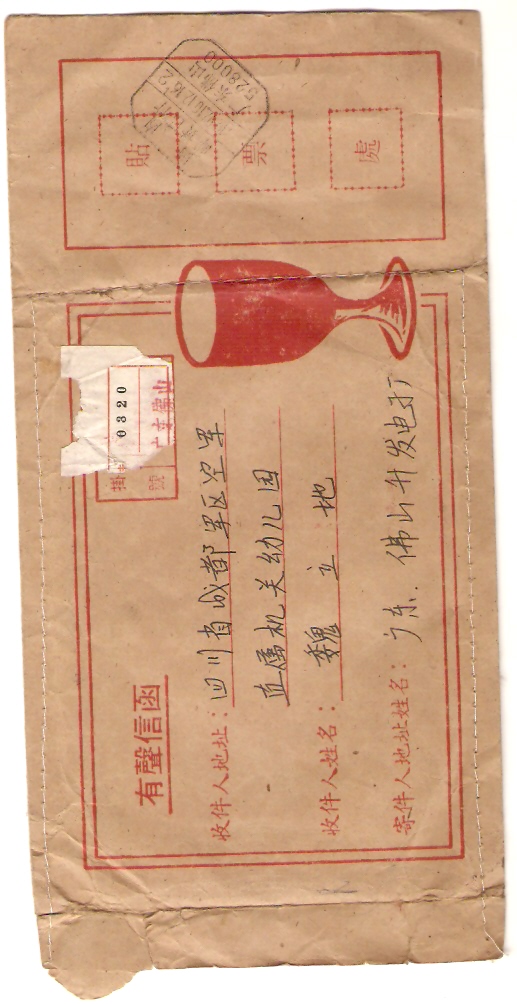 貼 票 處
528000
0320
广东佛山
掛
號
有聲信函
收件人地址：四川省成都军区空军
直属机关幼儿园
收件人姓名：魏立地
寄件人地址姓名：广东.佛山升发电打